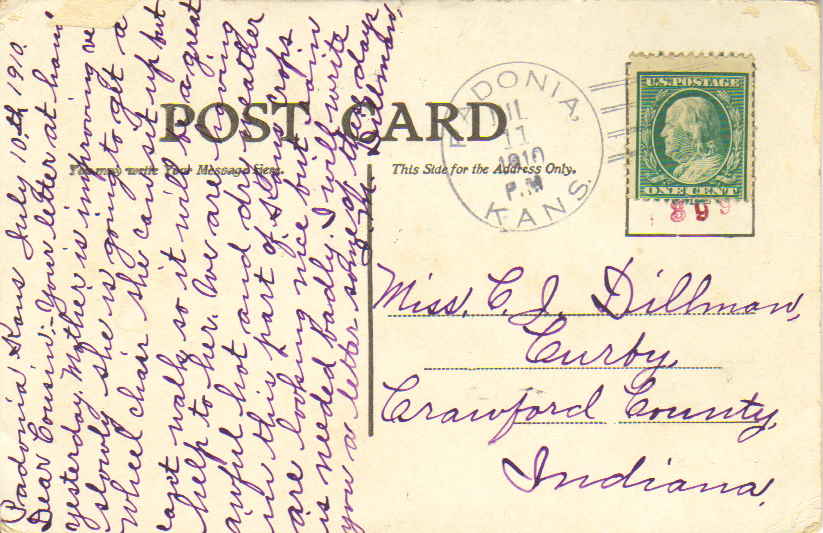 POST CARD
You may write Your Message Here.
This Side for the Address Only.
PADONIA,
11
1910
P.M
KANS.
U.S. POSTAGE
ONE CENT
Padonia Kans July 10th 1910.
Dear Cousin:- Your letter at hand
yesterday. Mother is improving ve
slowly she is going to get a
wheel chair she can sit up but
can't walk so it will be a great
help to her. We are having
awful hot and dry weather
in this part of Kans crops
are looking nice but rain
is needed badly. I will write
you a letter some of these days
Dillman,
Miss. C. J. Dillman,
Curby,
Crawford County,
Indiana.